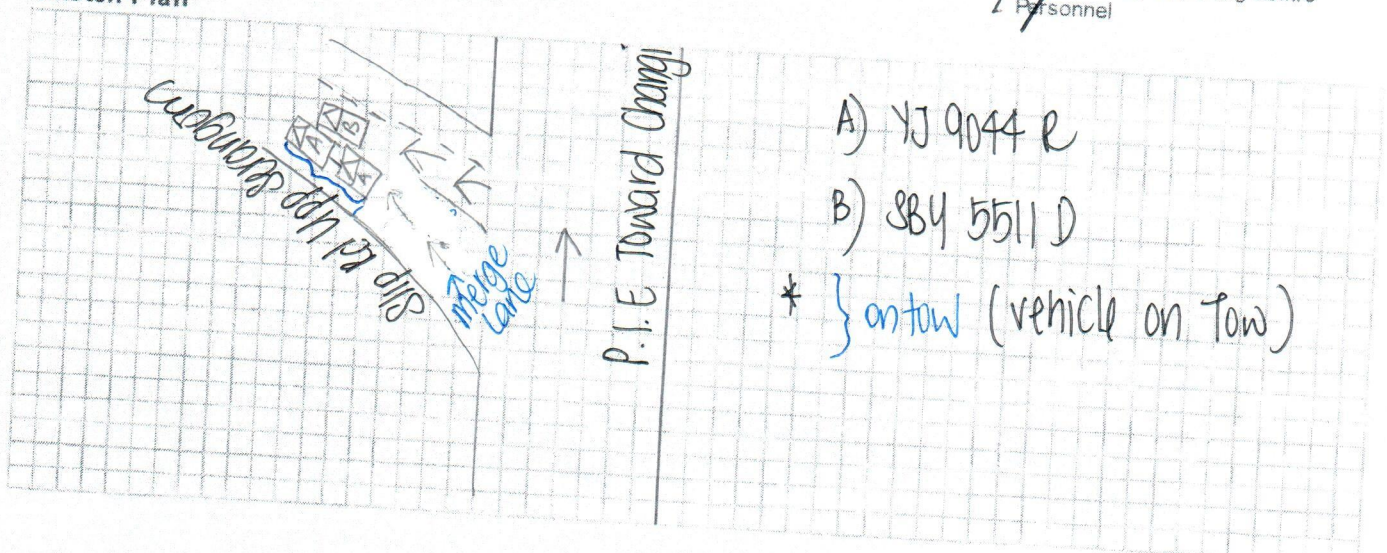 Plan
Personnel
Slip rd Upp Serangoon
A
B
A
merge
Lane
P.I.E Toward Changi
A) YJ 9044 R
B) SBY 5511 D
* } on tow (vehicle on Tow)